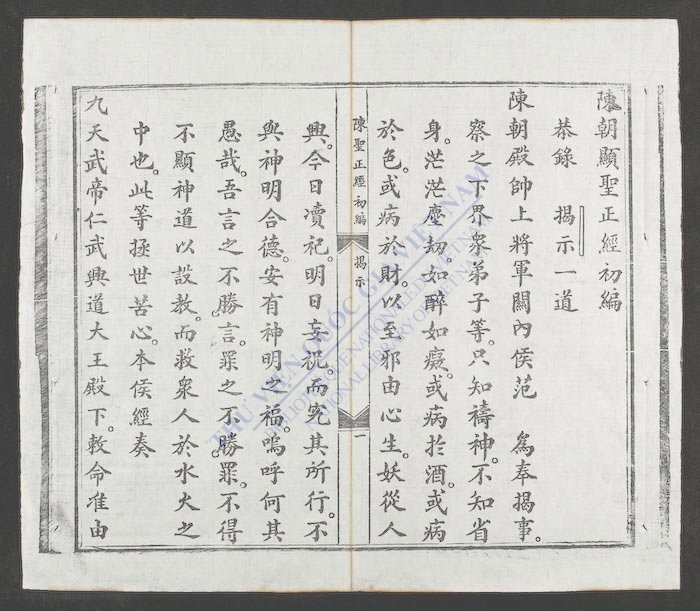 陳朝顯聖正經初編
恭錄 揭示一道
陳朝殿帥上將軍關內侯范 爲奉揭事。
察之下界衆弟子等。只知禱神。不知省
身。茫茫塵刼。如醉如癡。或病於酒。或病
於色。或病於財。以至邪由心生。妖從人
陳聖正經初編 揭示 一
興。今日瀆祀。明日妄祝。而究其所行。不
與神明合德。安有神明之福。嗚呼何其
愚哉。吾言之不勝言。罪之不勝罪。不得
不顯神道以設教。而救衆人於水火之
中也。此等拯世苦心。本侯經奏
九天武帝仁武興道大王殿下。敕命准由
THƯ VIỆN QUỐC GIA VIỆT NAM
BIBLIOTHÈQUE NATIONALE DU VIETNAM
NATIONAL LIBRARY OF VIETNAM